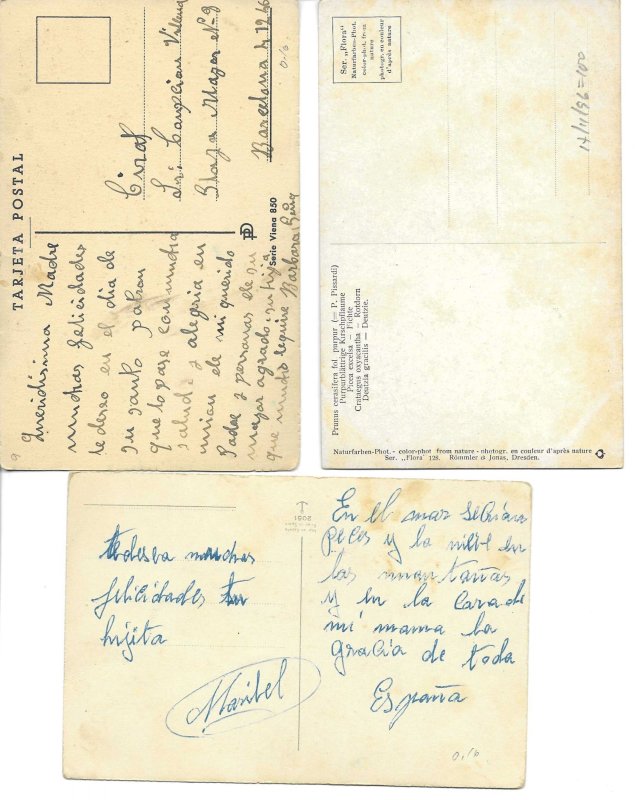 TARJETA POSTAL
Queridisima Madre
muchas felicidades
te deseo en el dia de
tu santo
que lo pase
salud y alegria en
mi querido
Padre y personas de su
mayor agrado: su hija
que mucho
Barbara
Serie Viena 850
Srta
Plaza Nº 9
Barcelona
0'10
9
Ser. „Flora"
Naturfarben-Phot.
color-phot. from
nature
photogr. en couleur
d'après nature
17/11/96=100
Prunus cerasifera fol. purpur (= P. Pissardi)
Purpurblättrige Kirschpflaume
Picea excelsa — Fichte
Crataegus oxyacantha — Rotdorn
Deutzia gracilis — Deutzie.
Naturfarben-Phot. - color-phot from nature - photogr. en couleur d'après nature
Ser. „Flora" 128. Römmler & Jonas, Dresden.
2051
te desea muchas
felicidades tu
hijita
Maribel
En el mar se crian
peces y la nieve en
las montañas
y en la cara de
mi mama la
gracia de toda
España